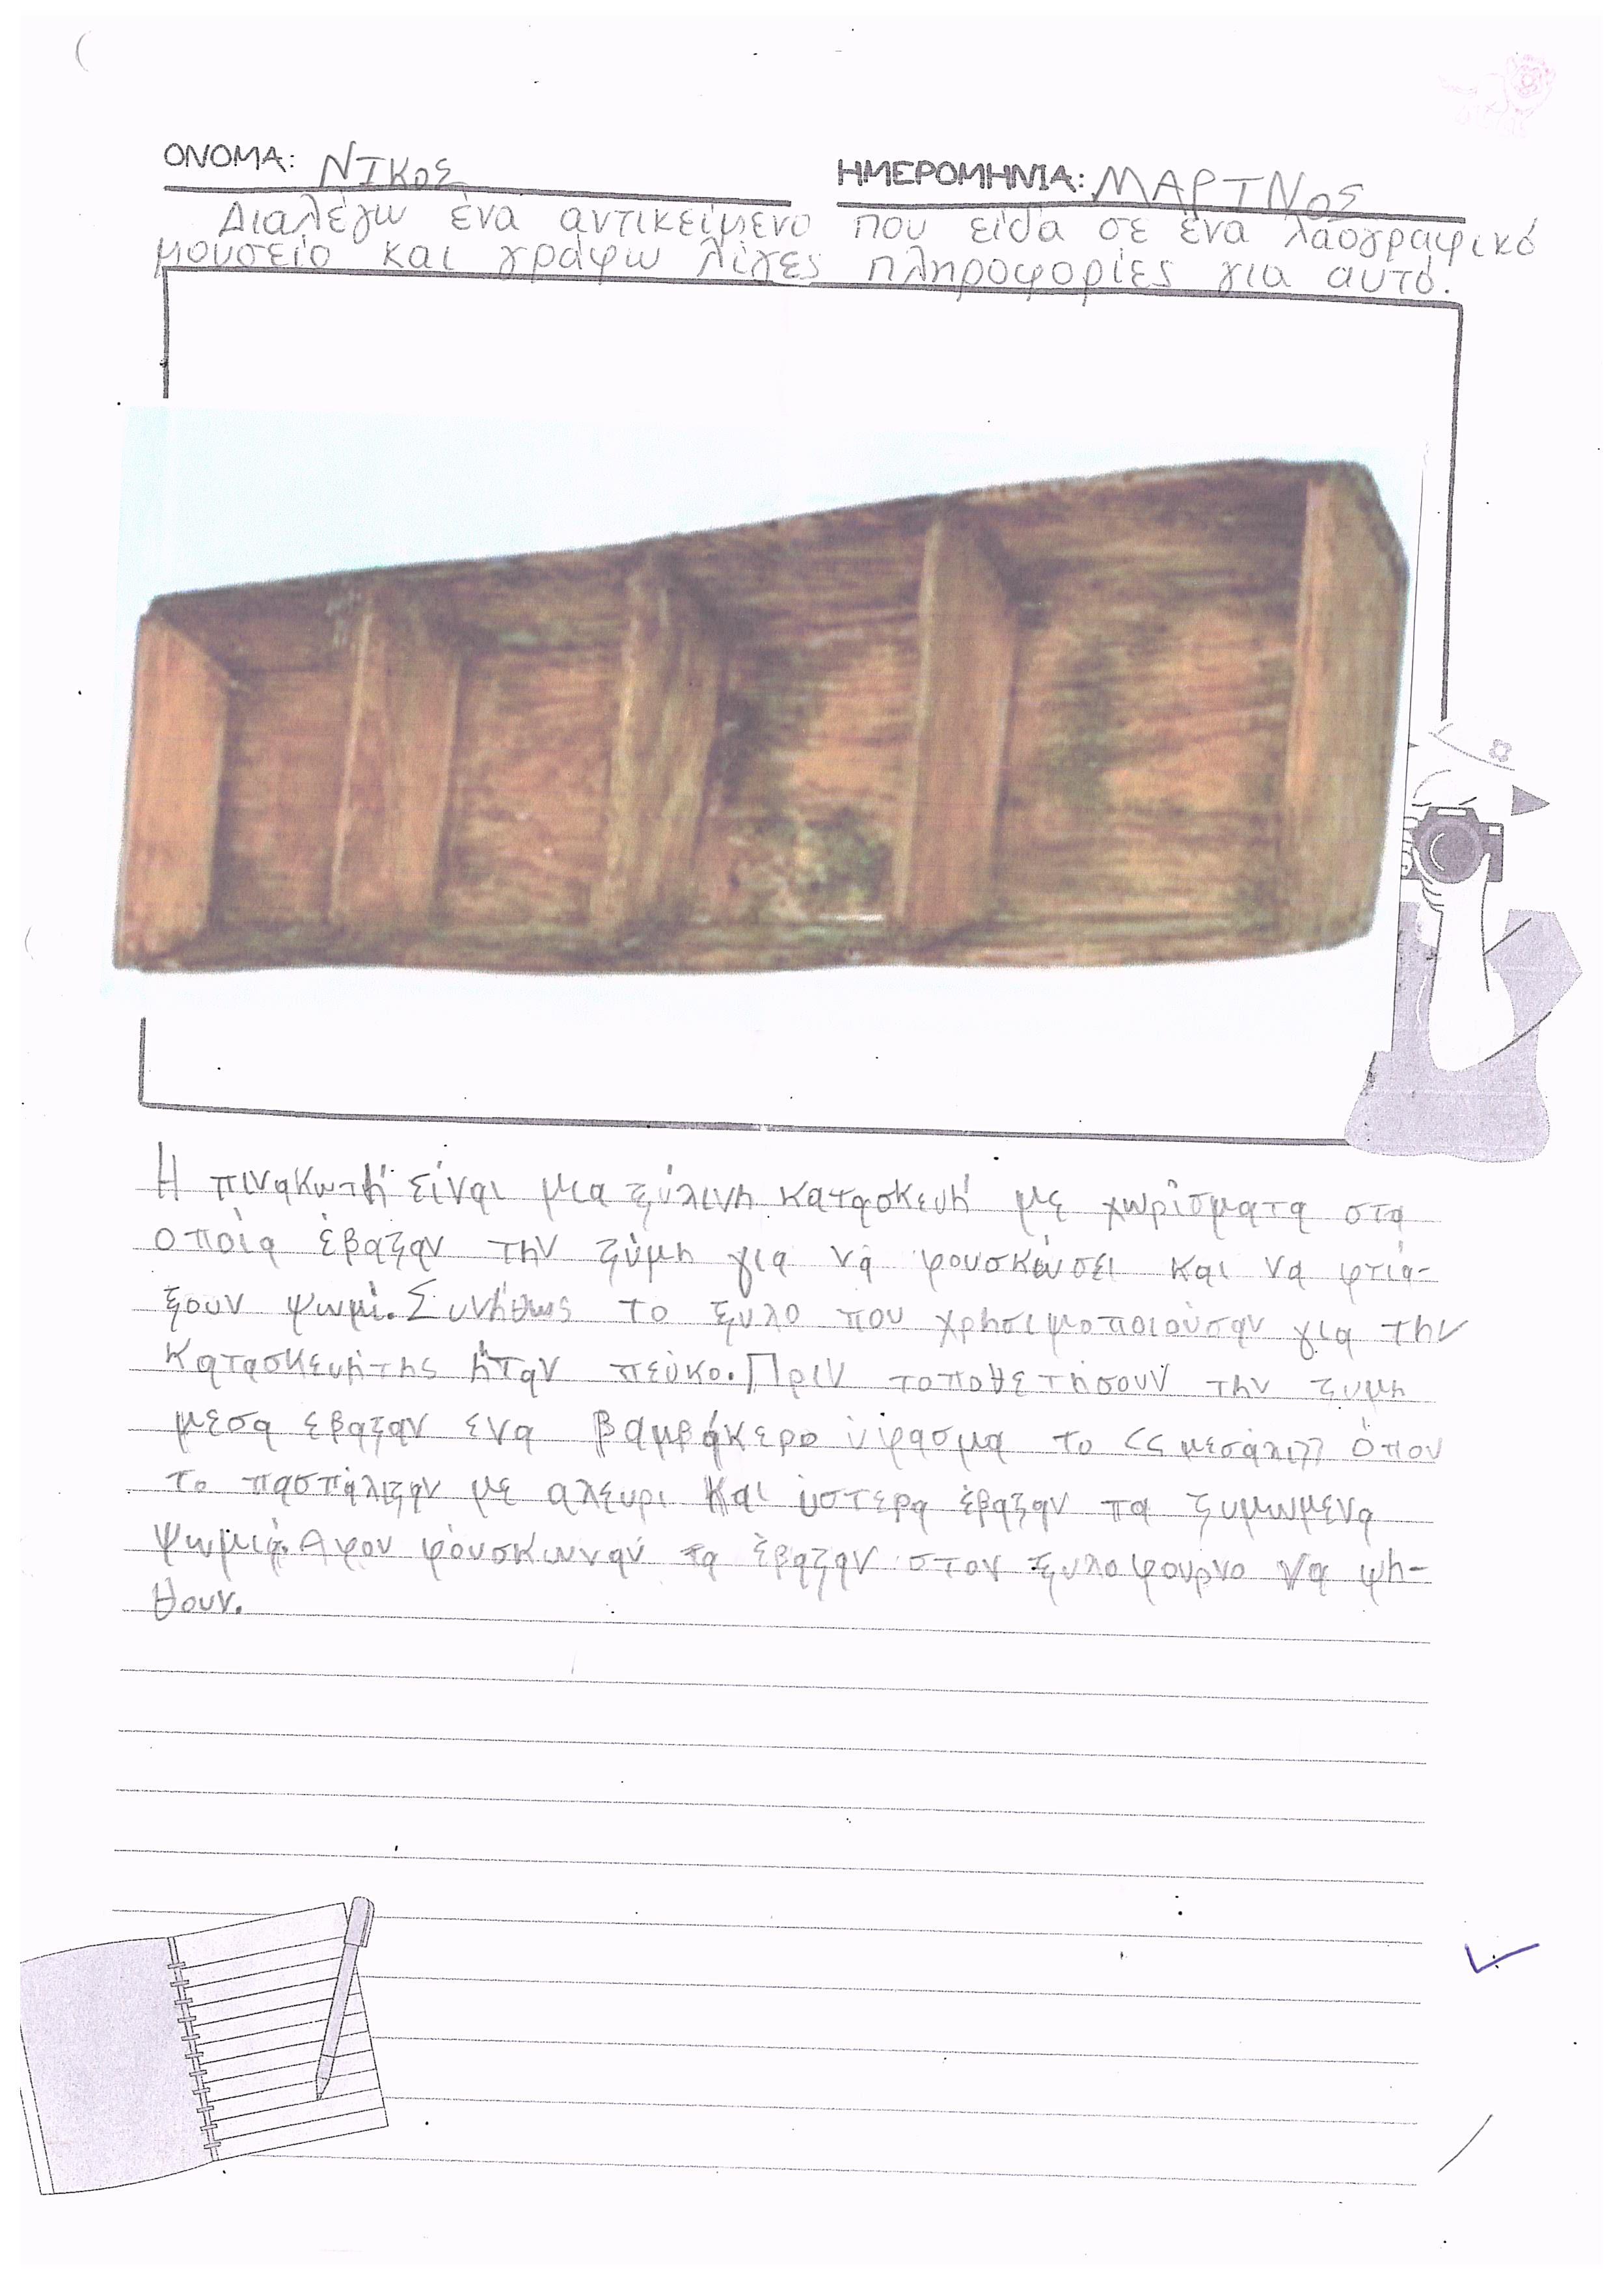 ΟΝΟΜΑ: ΝΙΚΟΣ ΗΜΕΡΟΜΗΝΙΑ: ΜΑΡΙΝΟΣ
Διαλέγω ένα αντικείμενο που είδα σε ένα λαογραφικό
μουσείο και γράφω λίγες πληροφορίες για αυτό.
Η πινακωτή είναι μια ξύλινη κατασκευή με χωρίσματα στα
οποία έβαζαν την ζύμη για να φουσκώσει και να φτιά-
ξουν ψωμί. Συνήθως το ξυλο που χρησιμοποιούσαν για την
κατασκευήτης ήταν πεύκο. Πριν τοποθετήσουν την ζυμη
μεσα εβαζαν ενα βαμβάκερο ύφασμα το <<μεσάλι>> όπου
το πασπάλιζαν με αλευρι και ύστερα έβαζαν τα ζυμωμενα
ψωμιά. Αφου φόυσκωναν τα έβαζαν στον ξυλοφουρνο να ψη-
θουν.